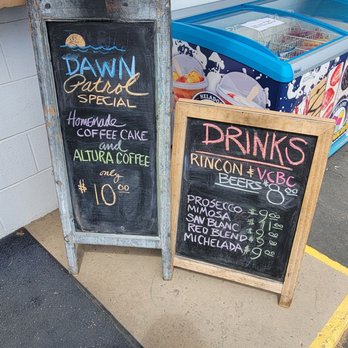 DAWN
Patrol
SPECIAL
Homemade
COFFEE CAKE
and
ALTURA COFFEE
only
$10.00
DRINKS
RINCON & VCBC
BEERS $8.00
PROSECCO $9.00
MIMOSA $11.00
SAV BLANC $9.00
RED BLEND $9.00
MICHELADA $9.00